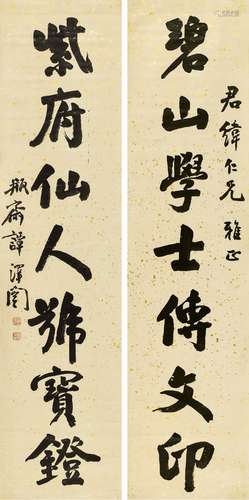 碧山學士傳文印
君緯仁兄雅正
紫府仙人號寶鐙
瓶齋譚澤闓